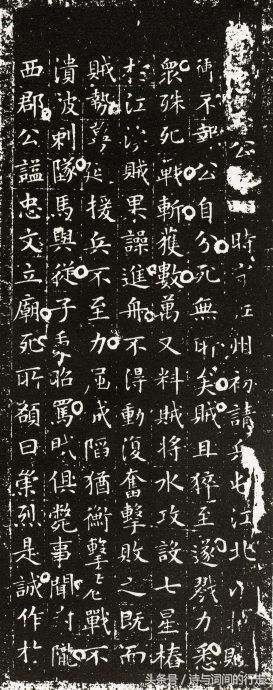 公時守江州初請兵屯江北以
不報公自分死無所矣賊且猝至遂戮力悉
眾殊死戰斬獲數萬又料賊將水攻設七星樁
於江賊果譟進舟不得動復奮擊敗之既而
賊勢蔓延援兵不至力屈城陷猶衝擊巷戰不
潰被刺墜馬與從子秉昭罵賊俱斃事聞封隴
西郡公謚忠文立廟死所額曰崇烈是誠作於
头条号 / 诗与词间的行走